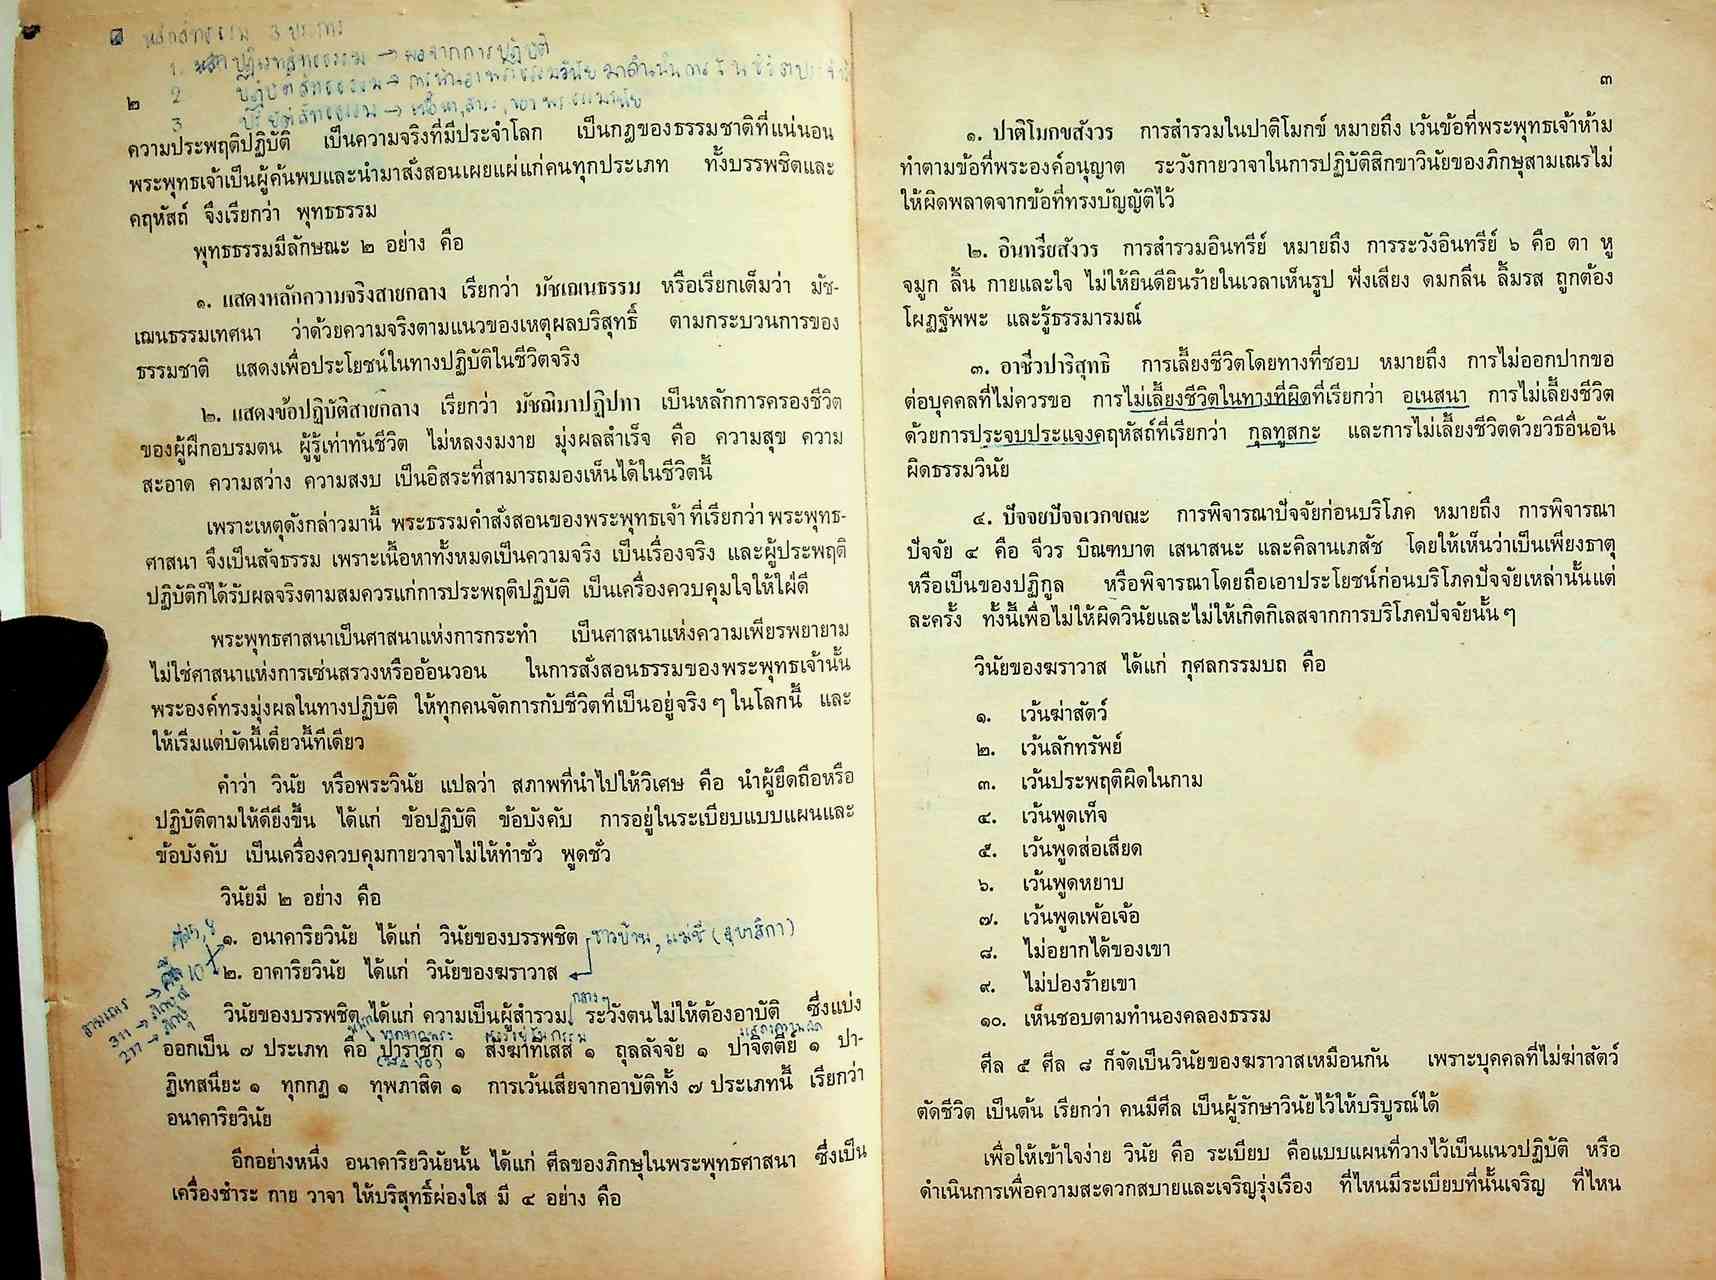 หลักสัทธรรม 3 ประการ
1. หลักปฏิเวทสัทธรรม → ผลจากการปฏิบัติ
2 ปฏิบัติสัทธรรม → การนำเอาพระธรรมวินัยมาดำเนินการในชีวิตประจำ
3 ปริยัติสัทธรรม →
๒
ความประพฤติปฏิบัติ เป็นความจริงที่มีประจำโลก เป็นกฎของธรรมชาติที่แน่นอน
พระพุทธเจ้าเป็นผู้ค้นพบและนำมาสั่งสอนเผยแผ่แก่คนทุกประเภท ทั้งบรรพชิตและ
คฤหัสถ์ จึงเรียกว่า พุทธธรรม
พุทธธรรมมีลักษณะ ๒ อย่าง คือ
๑. แสดงหลักความจริงสายกลาง เรียกว่า มัชเฌนธรรม หรือเรียกเต็มว่า มัช-
เฌนธรรมเทศนา ว่าด้วยความจริงตามแนวของเหตุผลบริสุทธิ์ ตามกระบวนการของ
ธรรมชาติ แสดงเพื่อประโยชน์ในทางปฏิบัติในชีวิตจริง
๒. แสดงข้อปฏิบัติสายกลาง เรียกว่า มัชฌิมาปฏิปทา เป็นหลักการครองชีวิต
ของผู้ฝึกอบรมตน ผู้รู้เท่าทันชีวิต ไม่หลงงมงาย มุ่งผลสำเร็จ คือ ความสุข ความ
สะอาด ความสว่าง ความสงบ เป็นอิสระที่สามารถมองเห็นได้ในชีวิตนี้
เพราะเหตุดังกล่าวมานี้ พระธรรมคำสั่งสอนของพระพุทธเจ้า ที่เรียกว่า พระพุทธ-
ศาสนา จึงเป็นสัจธรรม เพราะเนื้อหาทั้งหมดเป็นความจริง เป็นเรื่องจริง และผู้ประพฤติ
ปฏิบัติก็ได้รับผลจริงตามสมควรแก่การประพฤติปฏิบัติ เป็นเครื่องควบคุมใจให้ใฝ่ดี
พระพุทธศาสนาเป็นศาสนาแห่งการกระทำ เป็นศาสนาแห่งความเพียรพยายาม
ไม่ใช่ศาสนาแห่งการเซ่นสรวงหรืออ้อนวอน ในการสั่งสอนธรรมของพระพุทธเจ้านั้น
พระองค์ทรงมุ่งผลในทางปฏิบัติ ให้ทุกคนจัดการกับชีวิตที่เป็นอยู่จริง ๆ ในโลกนี้ และ
ให้เริ่มแต่บัดนี้เดี๋ยวนี้ทีเดียว
คำว่า วินัย หรือพระวินัย แปลว่า สภาพที่นำไปให้วิเศษ คือ นำผู้ยึดถือหรือ
ปฏิบัติตามให้ดียิ่งขึ้น ได้แก่ ข้อปฏิบัติ ข้อบังคับ การอยู่ในระเบียบแบบแผนและ
ข้อบังคับ เป็นเครื่องควบคุมกายวาจาไม่ให้ทำชั่ว พูดชั่ว
วินัยมี ๒ อย่าง คือ
๑. อนาคาริยวินัย ได้แก่ วินัยของบรรพชิต ชาวบ้าน, แม่ชี (อุบาสิกา)
ศีล 5, 8
๒. อาคาริยวินัย ได้แก่ วินัยของฆราวาส
สามเณร → ศีล 10
311 → ภิกษุณี
227 → ภิกษุ
กลาง ๆ
วินัยของบรรพชิต ได้แก่ ความเป็นผู้สำรวม ระวังตนไม่ให้ต้องอาบัติ ซึ่งแบ่ง
ออกเป็น ๗ ประเภท คือ ปาราชิก ๑ สังฆาทิเสส ๑ ถุลลัจจัย ๑ ปาจิตตีย์ ๑ ปา-
ฏิเทสนียะ ๑ ทุกกฏ ๑ ทุพภาสิต ๑ การเว้นเสียจากอาบัติทั้ง ๗ ประเภทนี้ เรียกว่า
อนาคาริยวินัย
อีกอย่างหนึ่ง อนาคาริยวินัยนั้น ได้แก่ ศีลของภิกษุในพระพุทธศาสนา ซึ่งเป็น
เครื่องชำระ กาย วาจา ให้บริสุทธิ์ผ่องใส มี ๔ อย่าง คือ
๓
๑. ปาติโมกขสังวร การสำรวมในปาติโมกข์ หมายถึง เว้นข้อที่พระพุทธเจ้าห้าม
ทำตามข้อที่พระองค์อนุญาต ระวังกายวาจาในการปฏิบัติสิกขาวินัยของภิกษุสามเณรไม่
ให้ผิดพลาดจากข้อที่ทรงบัญญัติไว้
๒. อินทรียสังวร การสำรวมอินทรีย์ หมายถึง การระวังอินทรีย์ ๖ คือ ตา หู
จมูก ลิ้น กายและใจ ไม่ให้ยินดียินร้ายในเวลาเห็นรูป ฟังเสียง ดมกลิ่น ลิ้มรส ถูกต้อง
โผฏฐัพพะ และรู้ธรรมารมณ์
๓. อาชีวปาริสุทธิ การเลี้ยงชีวิตโดยทางที่ชอบ หมายถึง การไม่ออกปากขอ
ต่อบุคคลที่ไม่ควรขอ การไม่เลี้ยงชีวิตในทางที่ผิดที่เรียกว่า อเนสนา การไม่เลี้ยงชีวิต
ด้วยการประจบประแจงคฤหัสถ์ที่เรียกว่า กุลทูสกะ และการไม่เลี้ยงชีวิตด้วยวิธีอื่นอัน
ผิดธรรมวินัย
๔. ปัจจยปัจจเวกขณะ การพิจารณาปัจจัยก่อนบริโภค หมายถึง การพิจารณา
ปัจจัย ๔ คือ จีวร บิณฑบาต เสนาสนะ และคิลานเภสัช โดยให้เห็นว่าเป็นเพียงธาตุ
หรือเป็นของปฏิกูล หรือพิจารณาโดยถือเอาประโยชน์ก่อนบริโภคปัจจัยเหล่านั้นแต่
ละครั้ง ทั้งนี้เพื่อไม่ให้ผิดวินัยและไม่ให้เกิดกิเลสจากการบริโภคปัจจัยนั้น ๆ
วินัยของฆราวาส ได้แก่ กุศลกรรมบถ คือ
๑. เว้นฆ่าสัตว์
๒. เว้นลักทรัพย์
๓. เว้นประพฤติผิดในกาม
๔. เว้นพูดเท็จ
๕. เว้นพูดส่อเสียด
๖. เว้นพูดหยาบ
๗. เว้นพูดเพ้อเจ้อ
๘. ไม่อยากได้ของเขา
๙. ไม่ปองร้ายเขา
๑๐. เห็นชอบตามทำนองคลองธรรม
ศีล ๕ ศีล ๘ ก็จัดเป็นวินัยของฆราวาสเหมือนกัน เพราะบุคคลที่ไม่ฆ่าสัตว์
ตัดชีวิต เป็นต้น เรียกว่า คนมีศีล เป็นผู้รักษาวินัยไว้ให้บริบูรณ์ได้
เพื่อให้เข้าใจง่าย วินัย คือ ระเบียบ คือแบบแผนที่วางไว้เป็นแนวปฏิบัติ หรือ
ดำเนินการเพื่อความสะดวกสบายและเจริญรุ่งเรือง ที่ไหนมีระเบียบที่นั้นเจริญ ที่ไหน